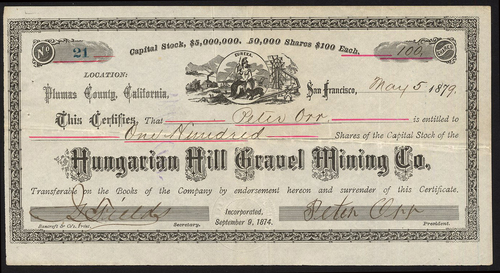 Capital Stock, $5,000,000. 50,000 Shares $100 Each.
No 21
100 SHARES
EUREKA
LOCATION:
Plumas County, California.
San Francisco, May 5 1879.
This Certifies, That Peter Orr is entitled to
One Hundred Shares of the Capital Stock of the
Hungarian Hill Gravel Mining Co.
Transferable on the Books of the Company by endorsement hereon and surrender of this Certificate.
Incorporated,
September 9, 1874.
Peter Orr
Bancroft & Co. Print.
Secretary.
President.